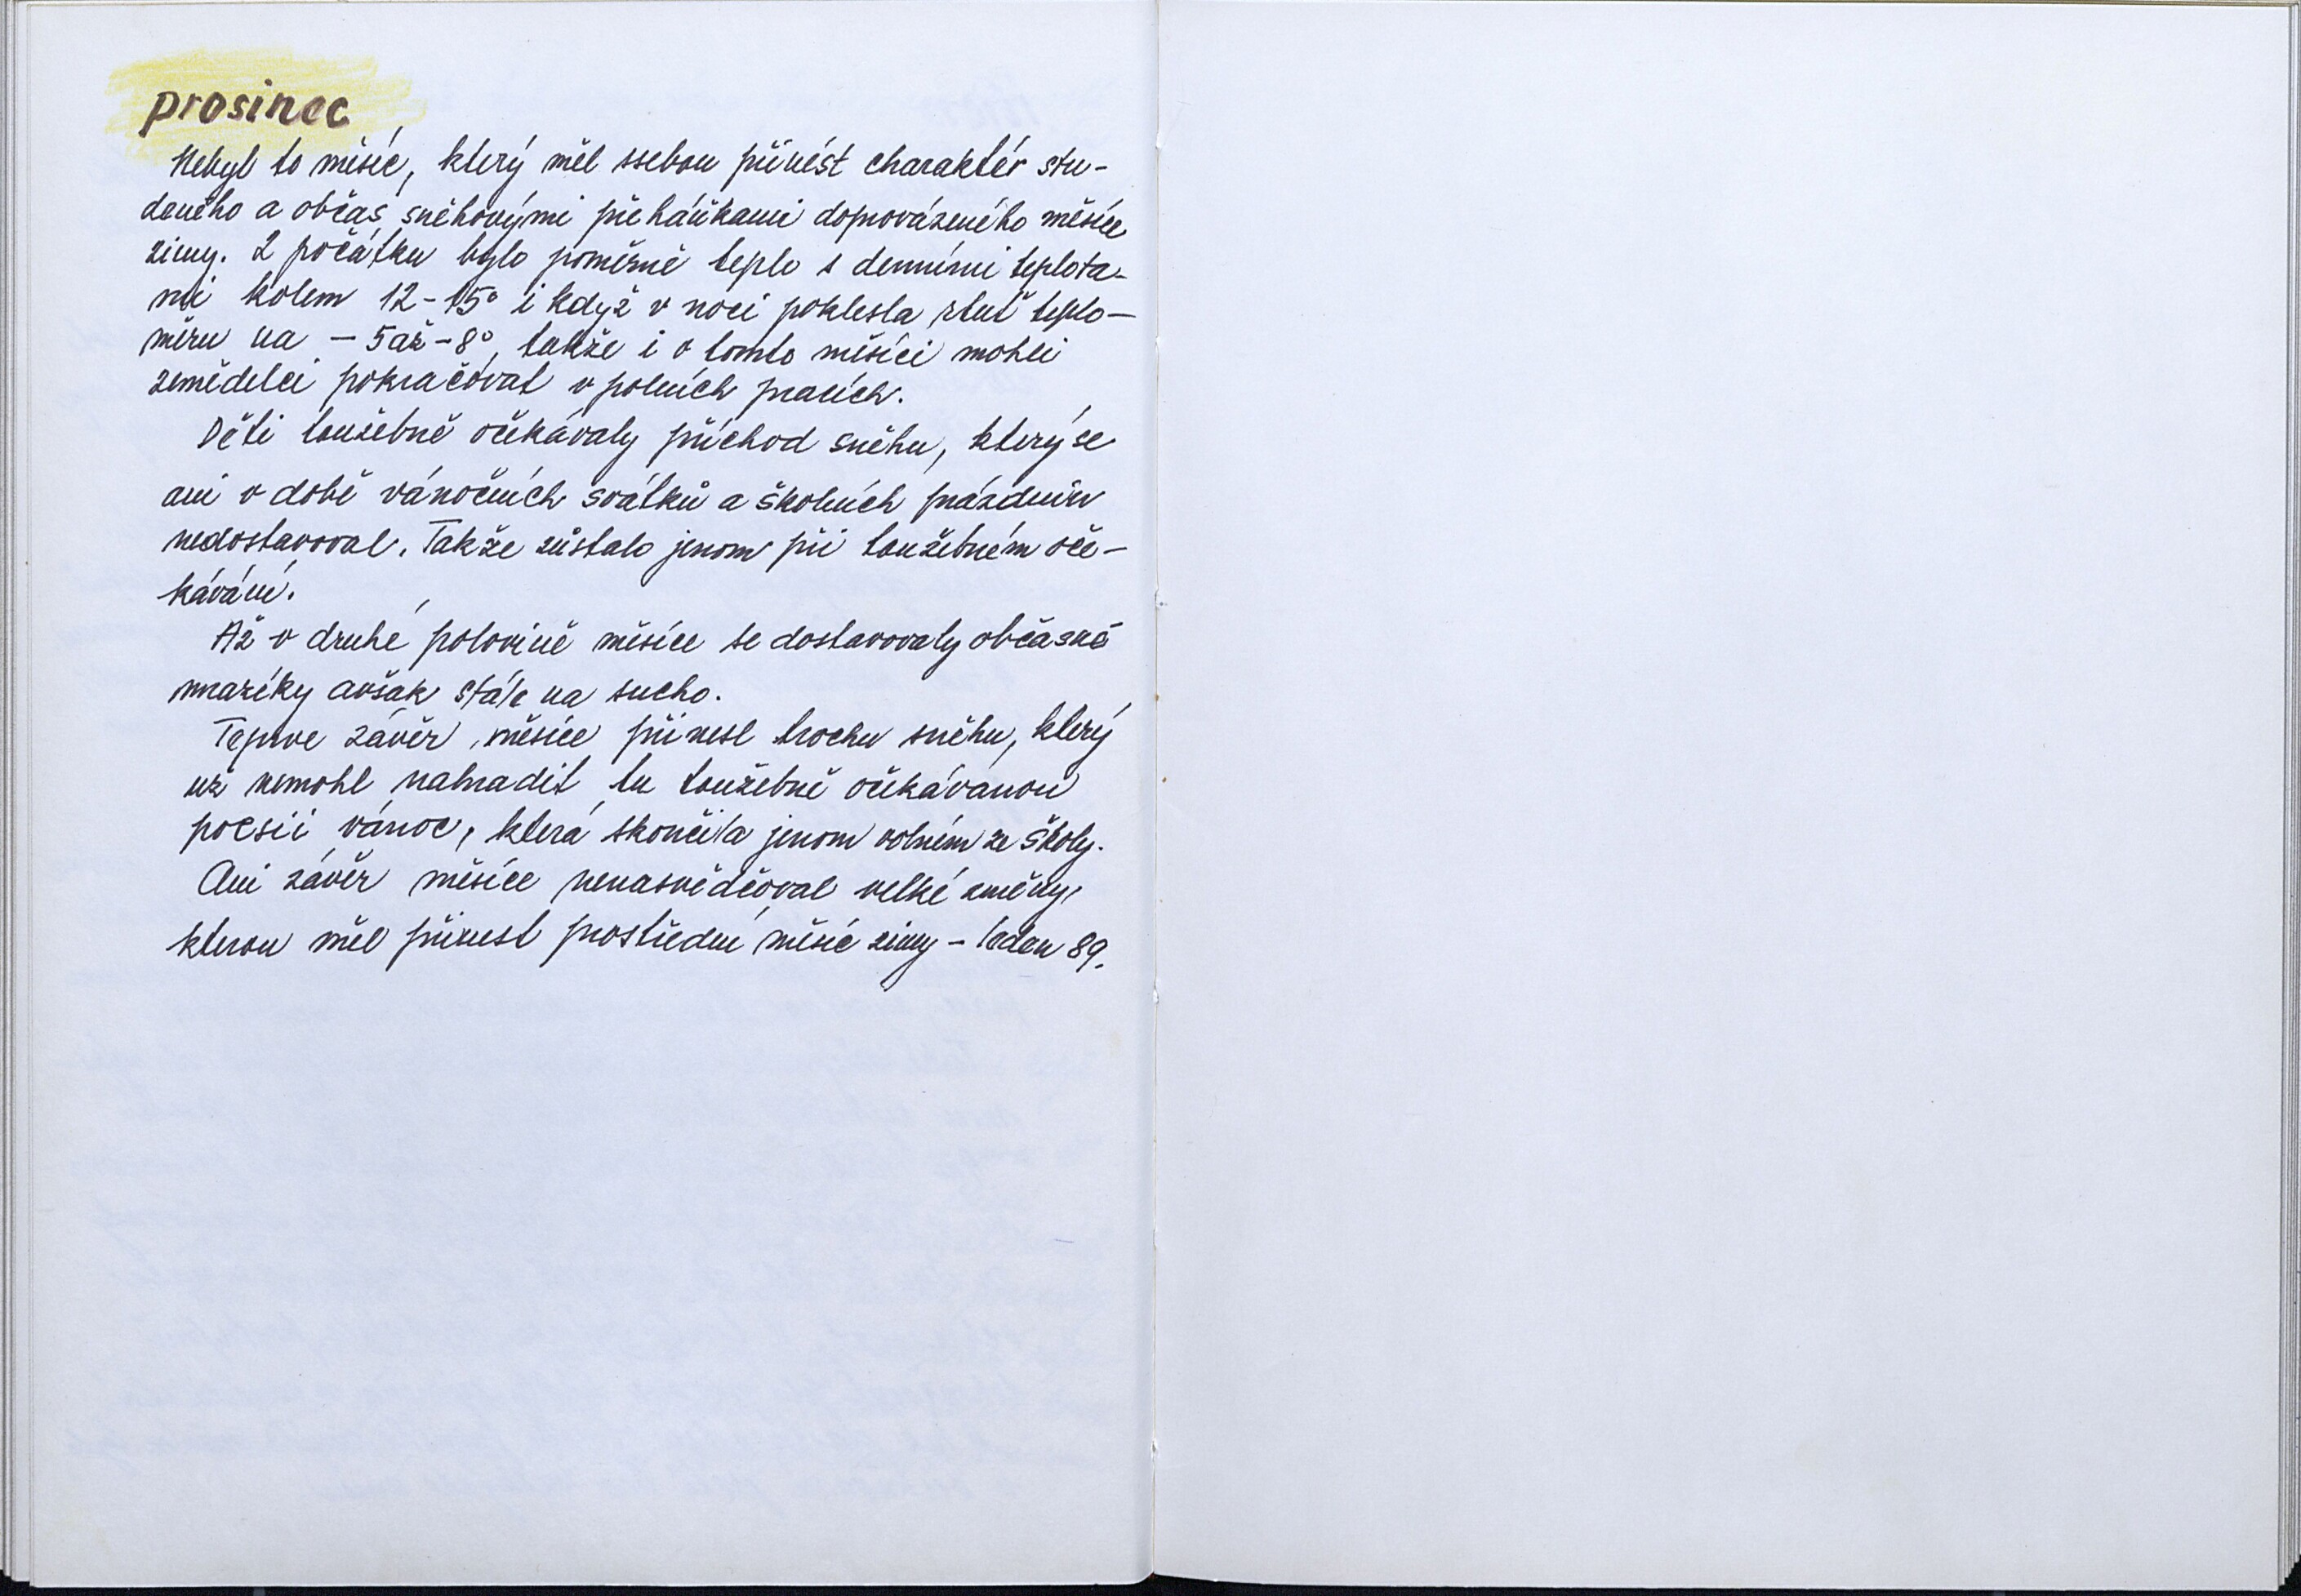 prosinec
Nebyl to měsíc, který měl ssebou přinést charaktér stu-
deného a občas sněhovými přeháňkami doprovázeného měsíce
zimy. Z počátku bylo poměrně teplo s denními teplota-
mi kolem 12-15° i když v noci poklesla rtuť teplo-
měru na - 5 až - 8°, takže i v tomto měsíci mohli
zemědelci pokračovat v polních pracích.
Děti toužebně očekávaly příchod sněhu, který se
ani v době vánočních svátků a školních prázdnin
nedostavoval. Takže zůstalo jenom při toužebném oče-
kávání.
Až v druhé polovině měsíce se dostavovaly občasné
mrazíky avšak stále na sucho.
Teprve závěr měsíce přinesl trochu sněhu, který
už nemohl nahradit tu toužebně očekávanou
poesii vánoc, která skončila jenom volném ze školy.
Ani závěr měsíce nenasvědčoval velké změny,
kterou měl přinest prostřední měsíc zimy - leden 89.